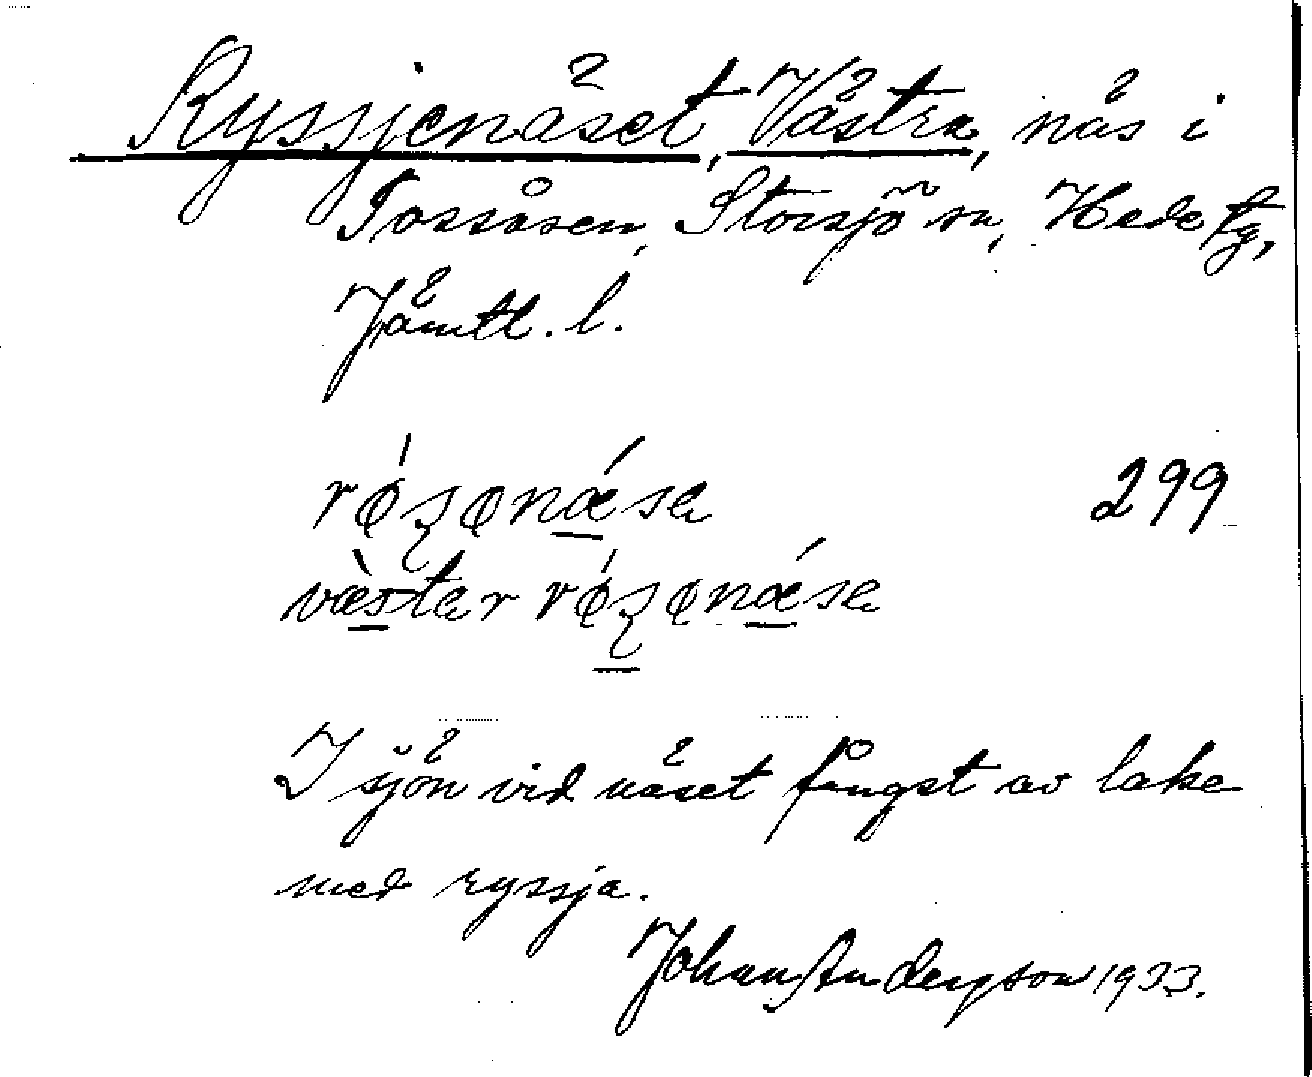 Ryssjenäset, Västra, näs i
Tossåsen, Storsjö sn, Hede tg,
Jämtl. l.
rǿʒønǽsa 299
væ̀star rǿʒønǽsa
I sjön vid näset fångst av lake
med ryssja.
Johan Anderson 1933.